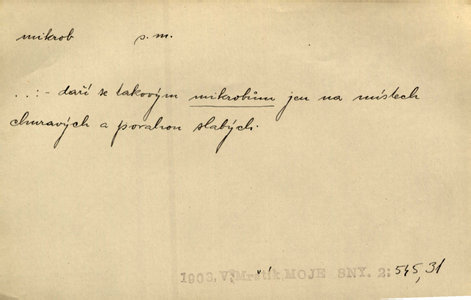 mikrob s. m.
..:- daří se takovým mikrobům jen na místech
churavých a povahou slabých.
1903, V. Mrštík, MOJE SNY. 2: 545, 31